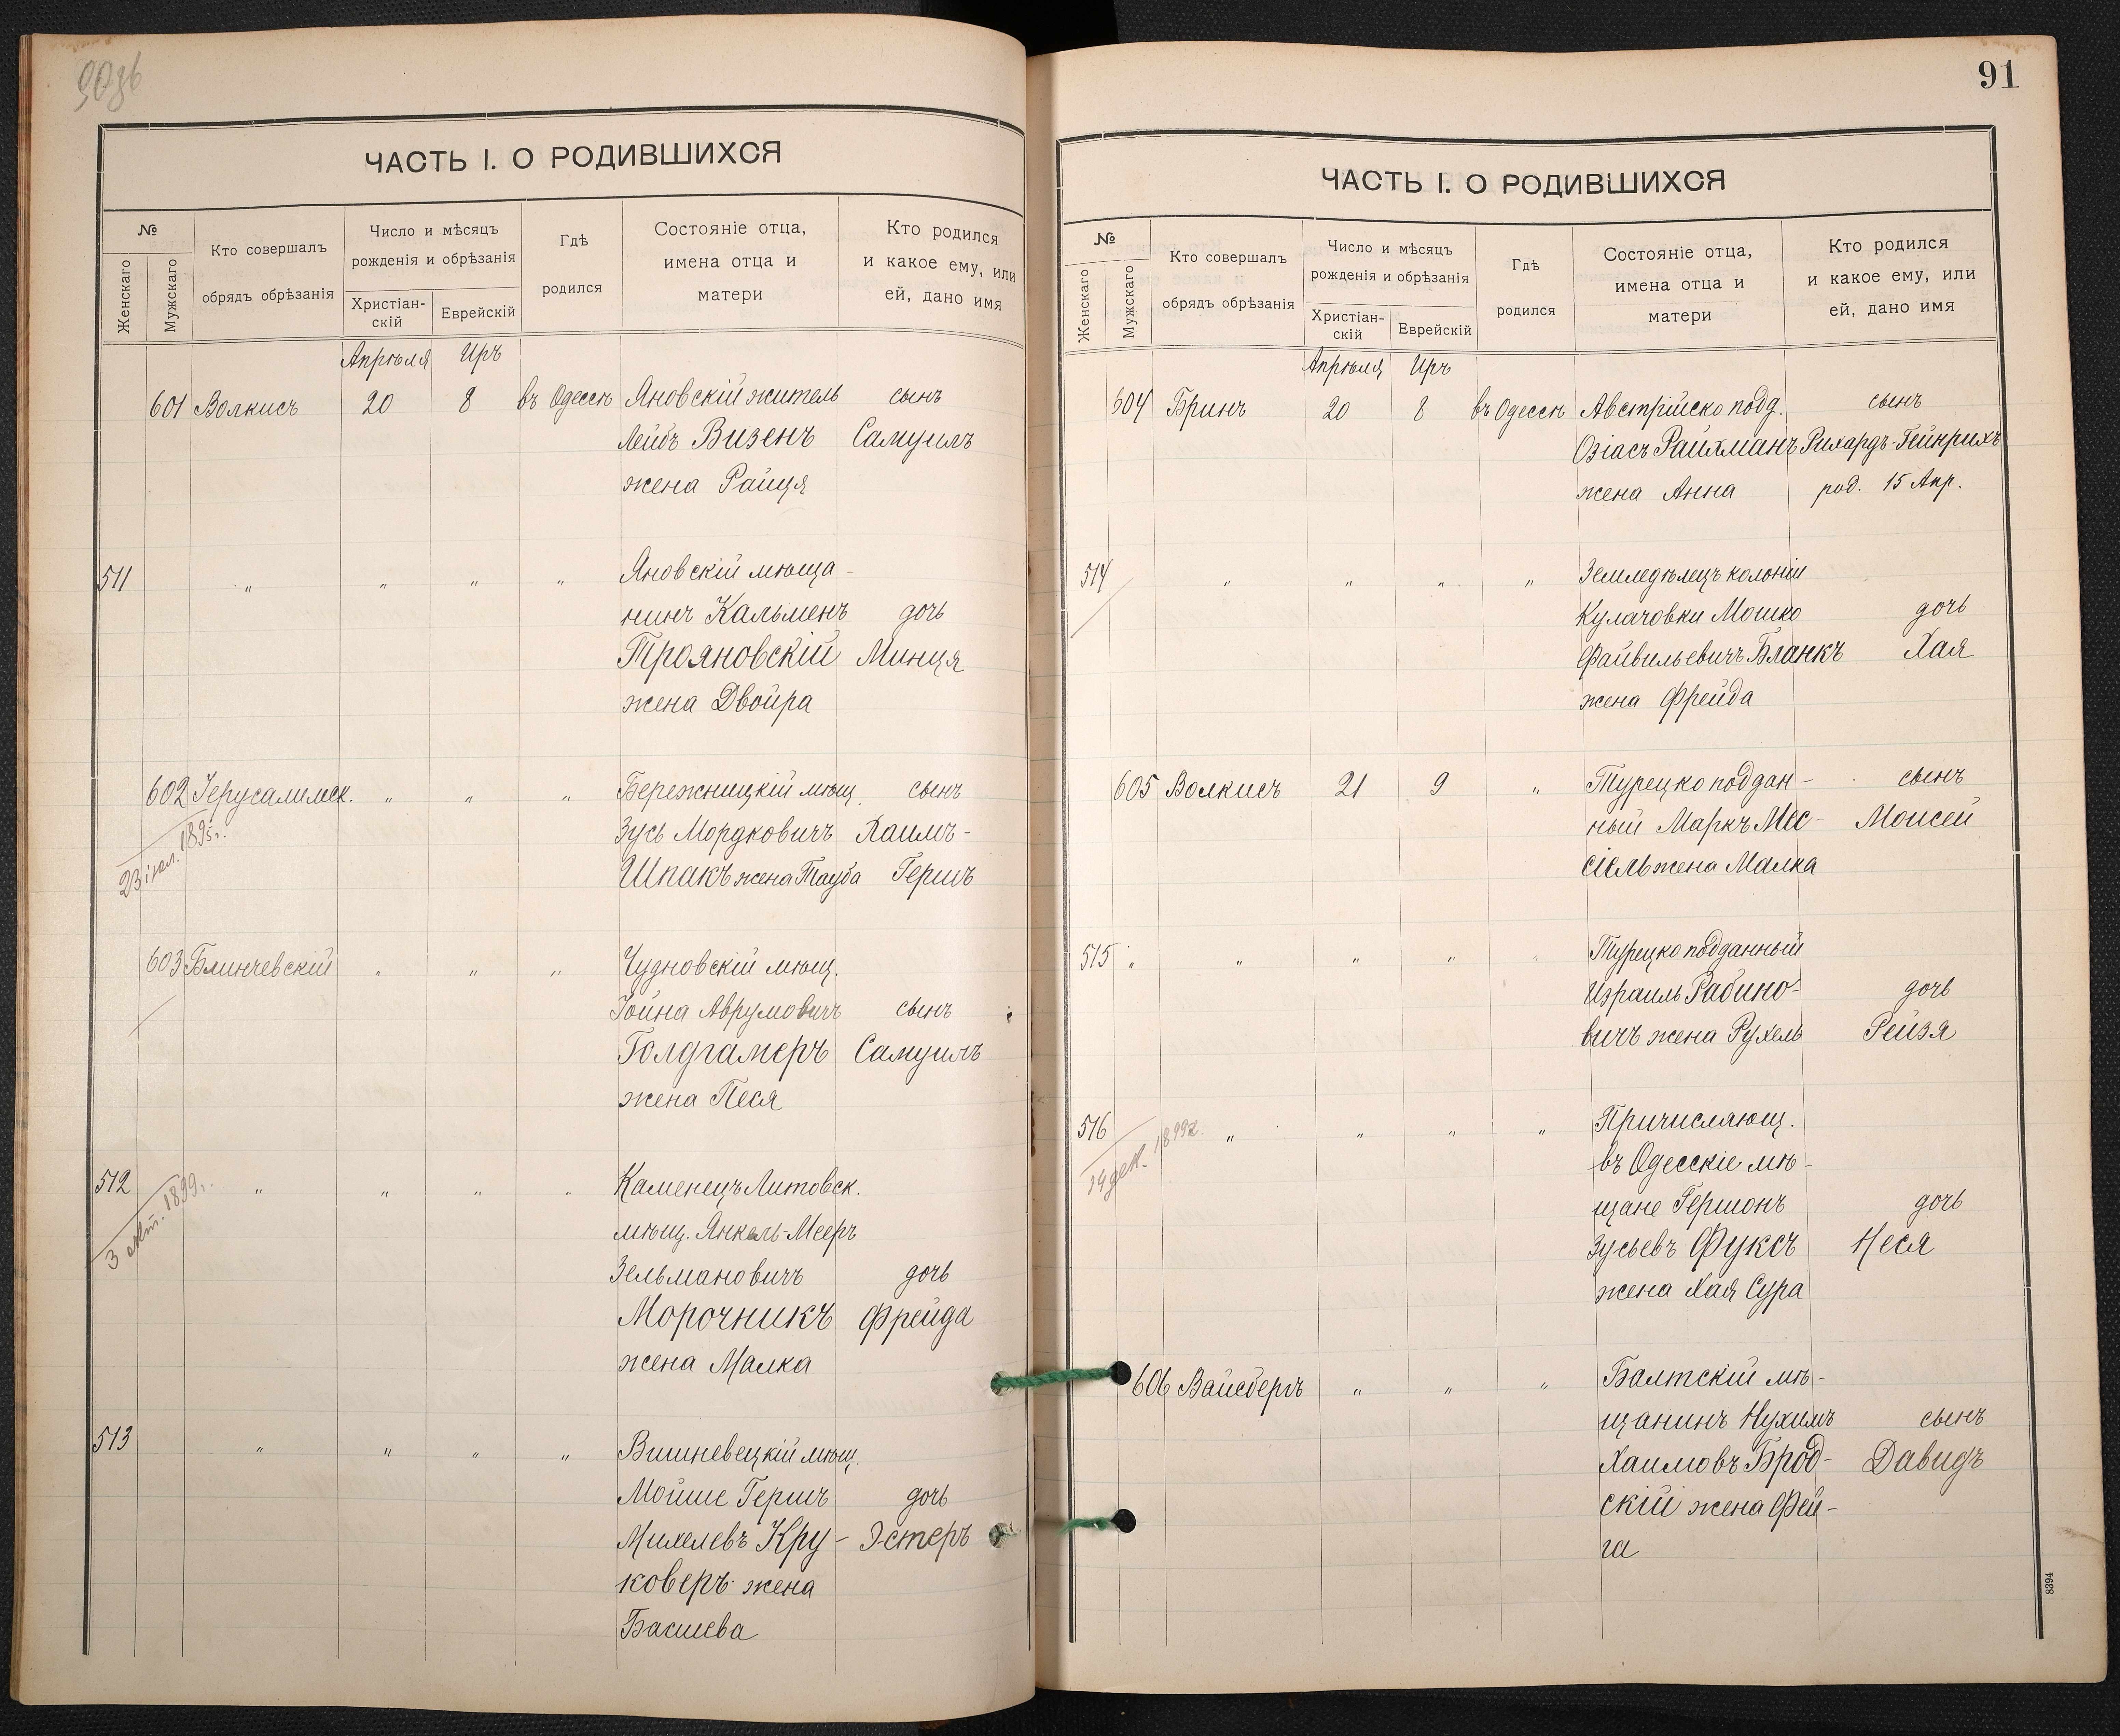 ЧАСТЬ I. О РОДИВШИХСЯ
№
Женскаго
Мужскаго
Кто совершалъ
обрядъ обрѣзанія
Число и мѣсяцъ
рожденія и обрѣзанія
Христіан-
скій
Еврейскій
Гдѣ
родился
Состояніе отца,
имена отца и
матери
Кто родился
и какое ему, или
ей, дано имя
Апрѣля Иръ
601 Волкисъ 20 8 въ Одессѣ Яновскій житель сынъ
Лейбъ Визенъ Самуилъ
жена Райця
511 " " " " Яновскій мѣща-
нинъ Кальменъ дочь
Трояновскій Минця
жена Двойра
602 Іерусалимск. " " " Бережницкій мѣщ. сынъ
Зусь Мордковичъ Хаимъ-
Шпакъ жена Тауба Гершъ
603 Блинчевскій " " " Чудновскій мѣщ.
Іойна Аврумовичъ сынъ
Голдгамеръ Самуилъ
жена Песя
512 " " " " Каменецъ Литовск.
3 1899г.
мѣщ. Янкель-Мееръ
Зельмановичъ дочь
Морочникъ Фрейда
жена Малка
513 " " " " Вишневецкій мѣщ.
Мойше Гершъ дочь
Михелевъ Кру- Эстеръ
коверъ жена
Басшева
91
ЧАСТЬ I. О РОДИВШИХСЯ
№
Женскаго
Мужскаго
Кто совершалъ
обрядъ обрѣзанія
Число и мѣсяцъ
рожденія и обрѣзанія
Христіан-
скій
Еврейскій
Гдѣ
родился
Состояніе отца,
имена отца и
матери
Кто родился
и какое ему, или
ей, дано имя
Апрѣля Иръ
604 Бринъ 20 8 въ Одессѣ Австрійско подд. сынъ
Озіасъ Райхманъ Рихардъ-Гейнрихъ
жена Анна род. 15 Апр.
514 " " " " Земледѣлецъ колоніи
Кулачовки Мошко дочь
Файвильевичъ Бланкъ Хая
жена Фрейда
605 Волкисъ 21 9 " Турецко поддан- сынъ
ный Маркъ Мес- Моисей
сіель жена Малка
515 " " " " " Турецко подданный
Израиль Рабино- дочь
вичъ жена Рухель Рейзя
516 " " " " Причисляющ.
въ Одесскіе мѣ-
щане Гершонъ дочь
Зусьевъ Фуксъ Неся
жена Хая Сура
606 Вайсберъ " " " Балтскій мѣ-
щанинъ Нухимъ сынъ
Хаимовъ Брод- Давидъ
скій жена Фей-
га
8394